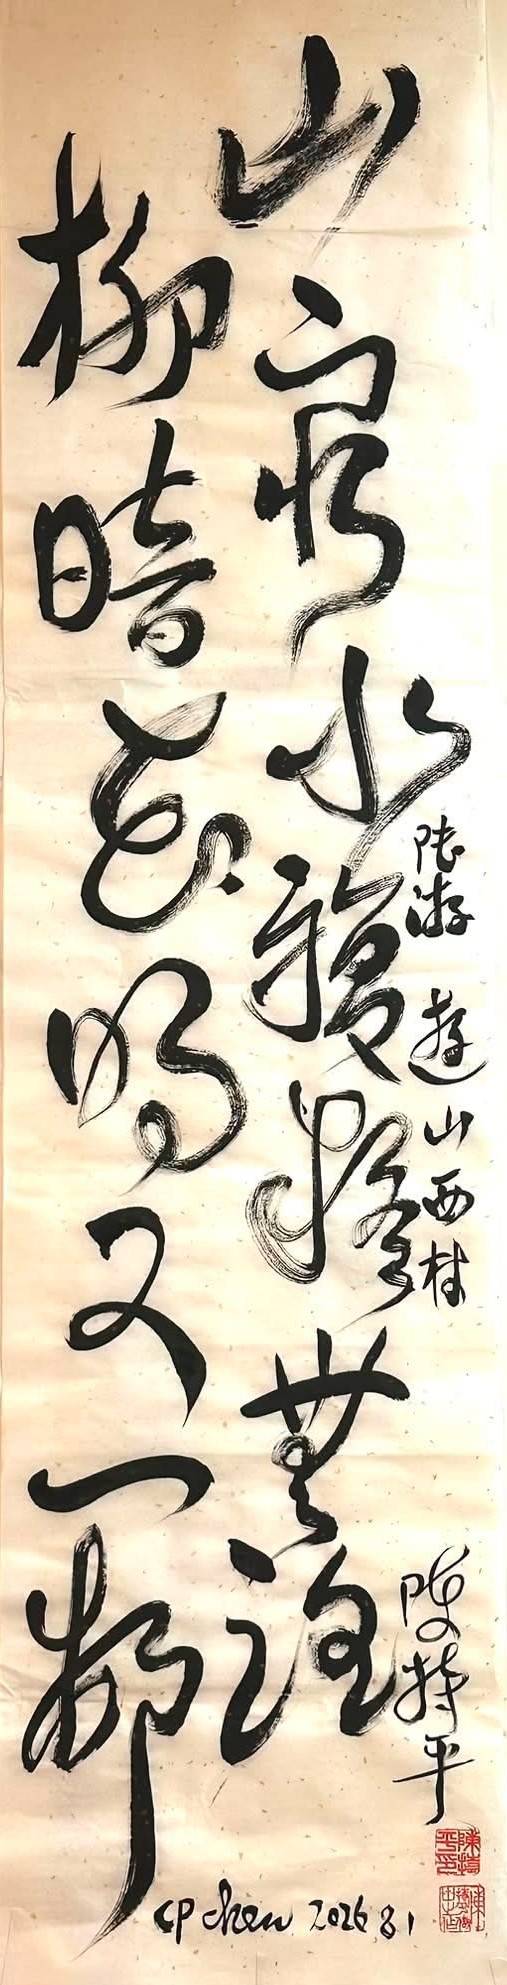 山窮水複疑無路
柳暗花明又一邨
陸游 遊山西村
陳持平
CP chen 2026 8 1